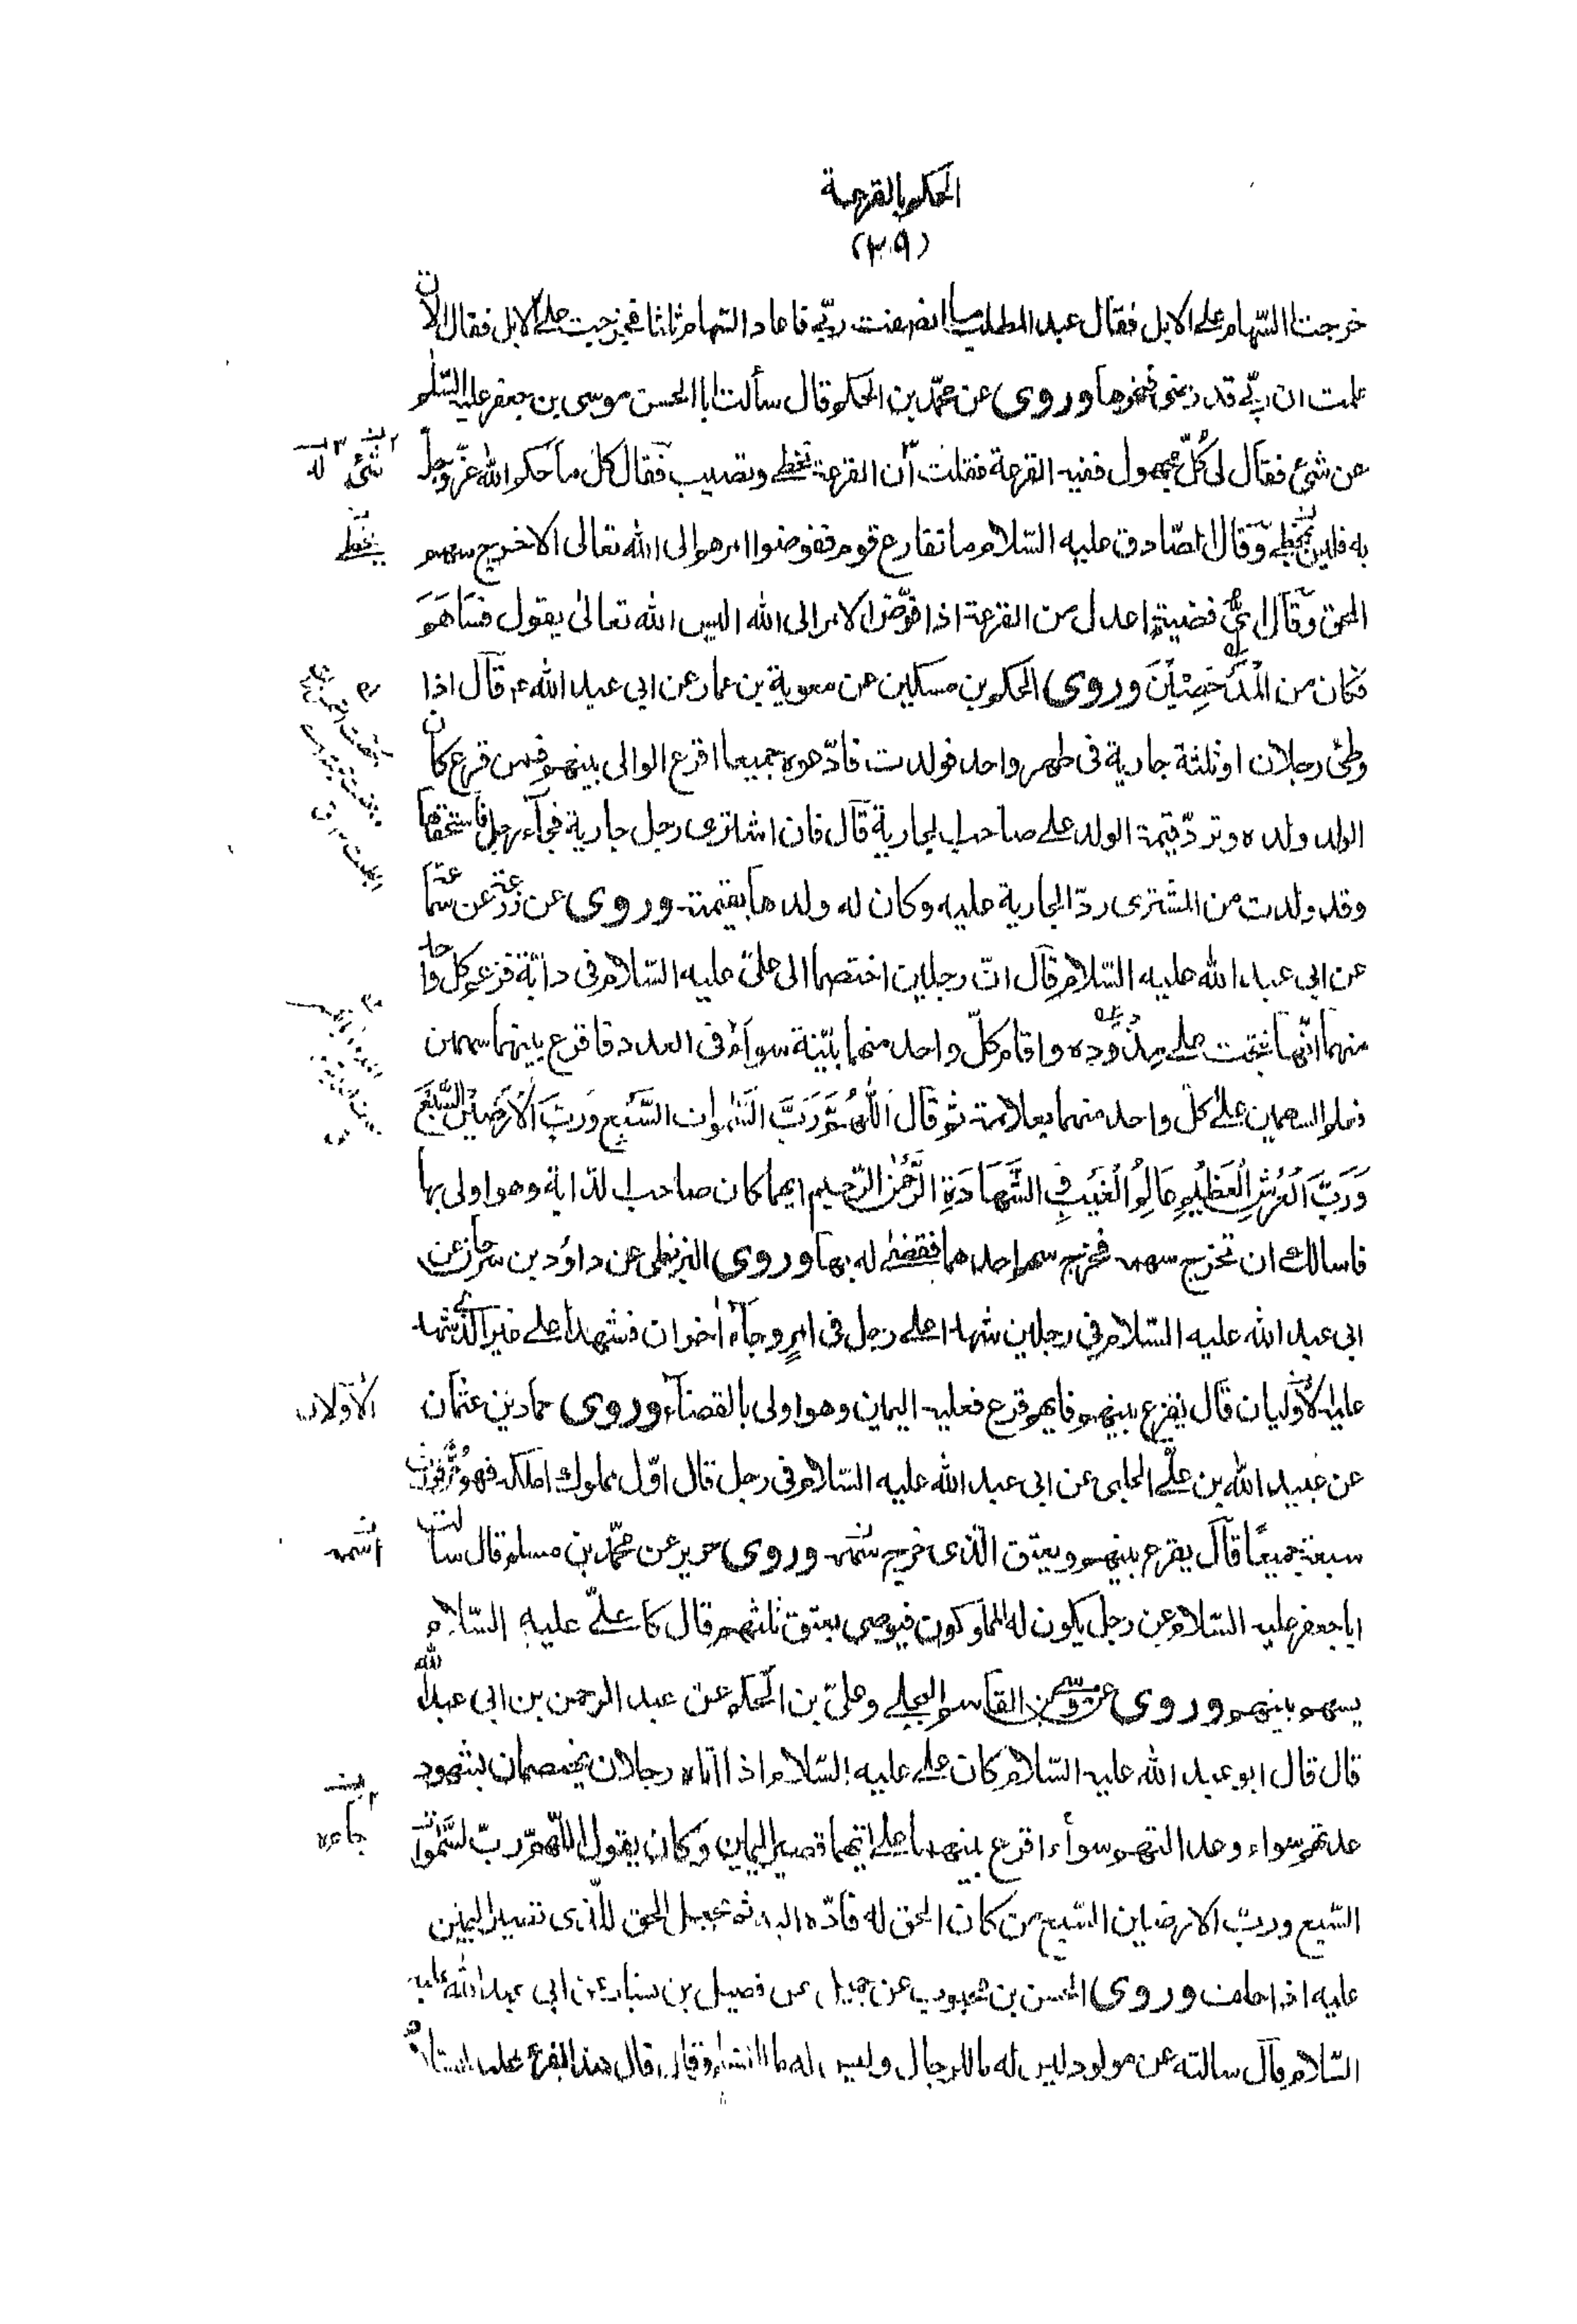 الحكم بالقرعة
(٣٩)
خرجت السهام على الابل فقال عبد المطلب ما انصفت ربّي فاعاد السّهام ثالثا فخرجت على الابل فقال الآن
علمت ان ربّي قد رضى فنحرها وروى عن محمّد بن الحكم قال سألت ابا الحسن موسى بن جعفر عليه السّلم
عن شئ فقال لى كلّ مجهول ففيه القرعة فقلت انّ القرعة تخطى وتصيب فقال كلّ ما حكم الله عزّ وجلّ
به فليس بمخطى وقال الصّادق عليه السّلام ما تقارع قوم ففوضوا امرهم الى الله تعالى الا خرج سهم
المحق وقال اىّ قضية اعدل من القرعة اذا فوّض الامر الى الله اليس الله تعالى يقول فَسَاهَمَ
فكان من الْمُدْحَضِيْنَ وروى الحكم بن مسكين عن معوية بن عمار عن ابى عبد الله ع قال اذا
وطئ رجلان او ثلثة جارية فى طهر واحد فولدت فادّعوه جميعا اقرع الوالى بينهم فمن قرع كان
الولد ولده وتردّ قيمة الولد على صاحب الجارية قال فان اشترى رجل جارية فجاء رجل فاستحقها
وقد ولدت من المشترى ردّ الجارية عليه وكان له ولدها بقيمته وروى عن زرعة عن سماعة
عن ابى عبد الله عليه السّلام قال انّ رجلين اختصما الى علىّ عليه السّلام فى دابّة فزعم كل واحد
منهما انّها نتجت على مذوده واقام كلّ واحد منهما بيّنة سواء فى العدد فاقرع بينهما سهمين
فعلم السهمين على كلّ واحد منهما بعلامة ثم قال اَللّٰهُمَّ رَبَّ السَّمٰوات السَّبْع وَرَبَّ الْاَرَضِيْنَ السَّبْعِ
وَرَبَّ الْعَرْشِ الْعَظِيْمِ عَالِمَ الْغَيْبِ وَ الشَّهَادَةِ الرَّحْمٰنَ الرَّحِيم ايهما كان صاحب الدّابة وهو اولى بها
فاسالك ان تخرج سهمه فخرج سهم احدهما فقضى له بها وروى البزنطى عن داوُد بن سرحان عن
ابى عبد الله عليه السّلام فى رجلين شهدا على رجل فى امرٍ وجاء اٰخران فشهدا على غير الّذى شهد
عليه الاوّليان قال يقرع بينهم فايهم قرع فعليه اليمين وهو اولى بالقضاء وروى حماد بن عثمان
عن عبيد الله بن علىّ الحلبى عن ابى عبد الله عليه السّلام فى رجل قال اوّل مملوك املكه فهو حرّ فورث
سبعة جميعًا قال يقرع بينهم ويعتق الّذى خرج سهمه وروى حريز عن محمّد بن مسلم قال سألت
ابا جعفر عليه السّلام عن رجل يكون له المملوكون فيوصى بعتق ثلثهم قال كان علىّ عليه السّلام
يسهم بينهم وروى عن موسى بن القاسم البجلى وعلىّ بن الحكم عن عبد الرحمن بن ابى عبد الله
قال قال ابو عبد الله عليه السّلام كان على عليه السّلام اذا اتاه رجلان يختصمان بشهود
عدتهم سواء وعدالتهم سواء اقرع بينهما على ايّهما تصير اليمين وكان يقول اللّٰهمّ ربّ السَّمٰوات
السّبع وربّ الارضين السّبع من كان الحق له فادّه اليه ثم يجعل الحق للّذى تصير اليمين
عليه اذا حلف وروى الحسن بن محبوب عن جميل عن فضيل بن يسار عن ابى عبد الله عليه
السّلام قال سالته عن مولود ليس له ما للرجال وليس له ما للنساء قال هذا يقرع عليه الامام
شئ له
يخطى
الاولان
اسمه
جاءه